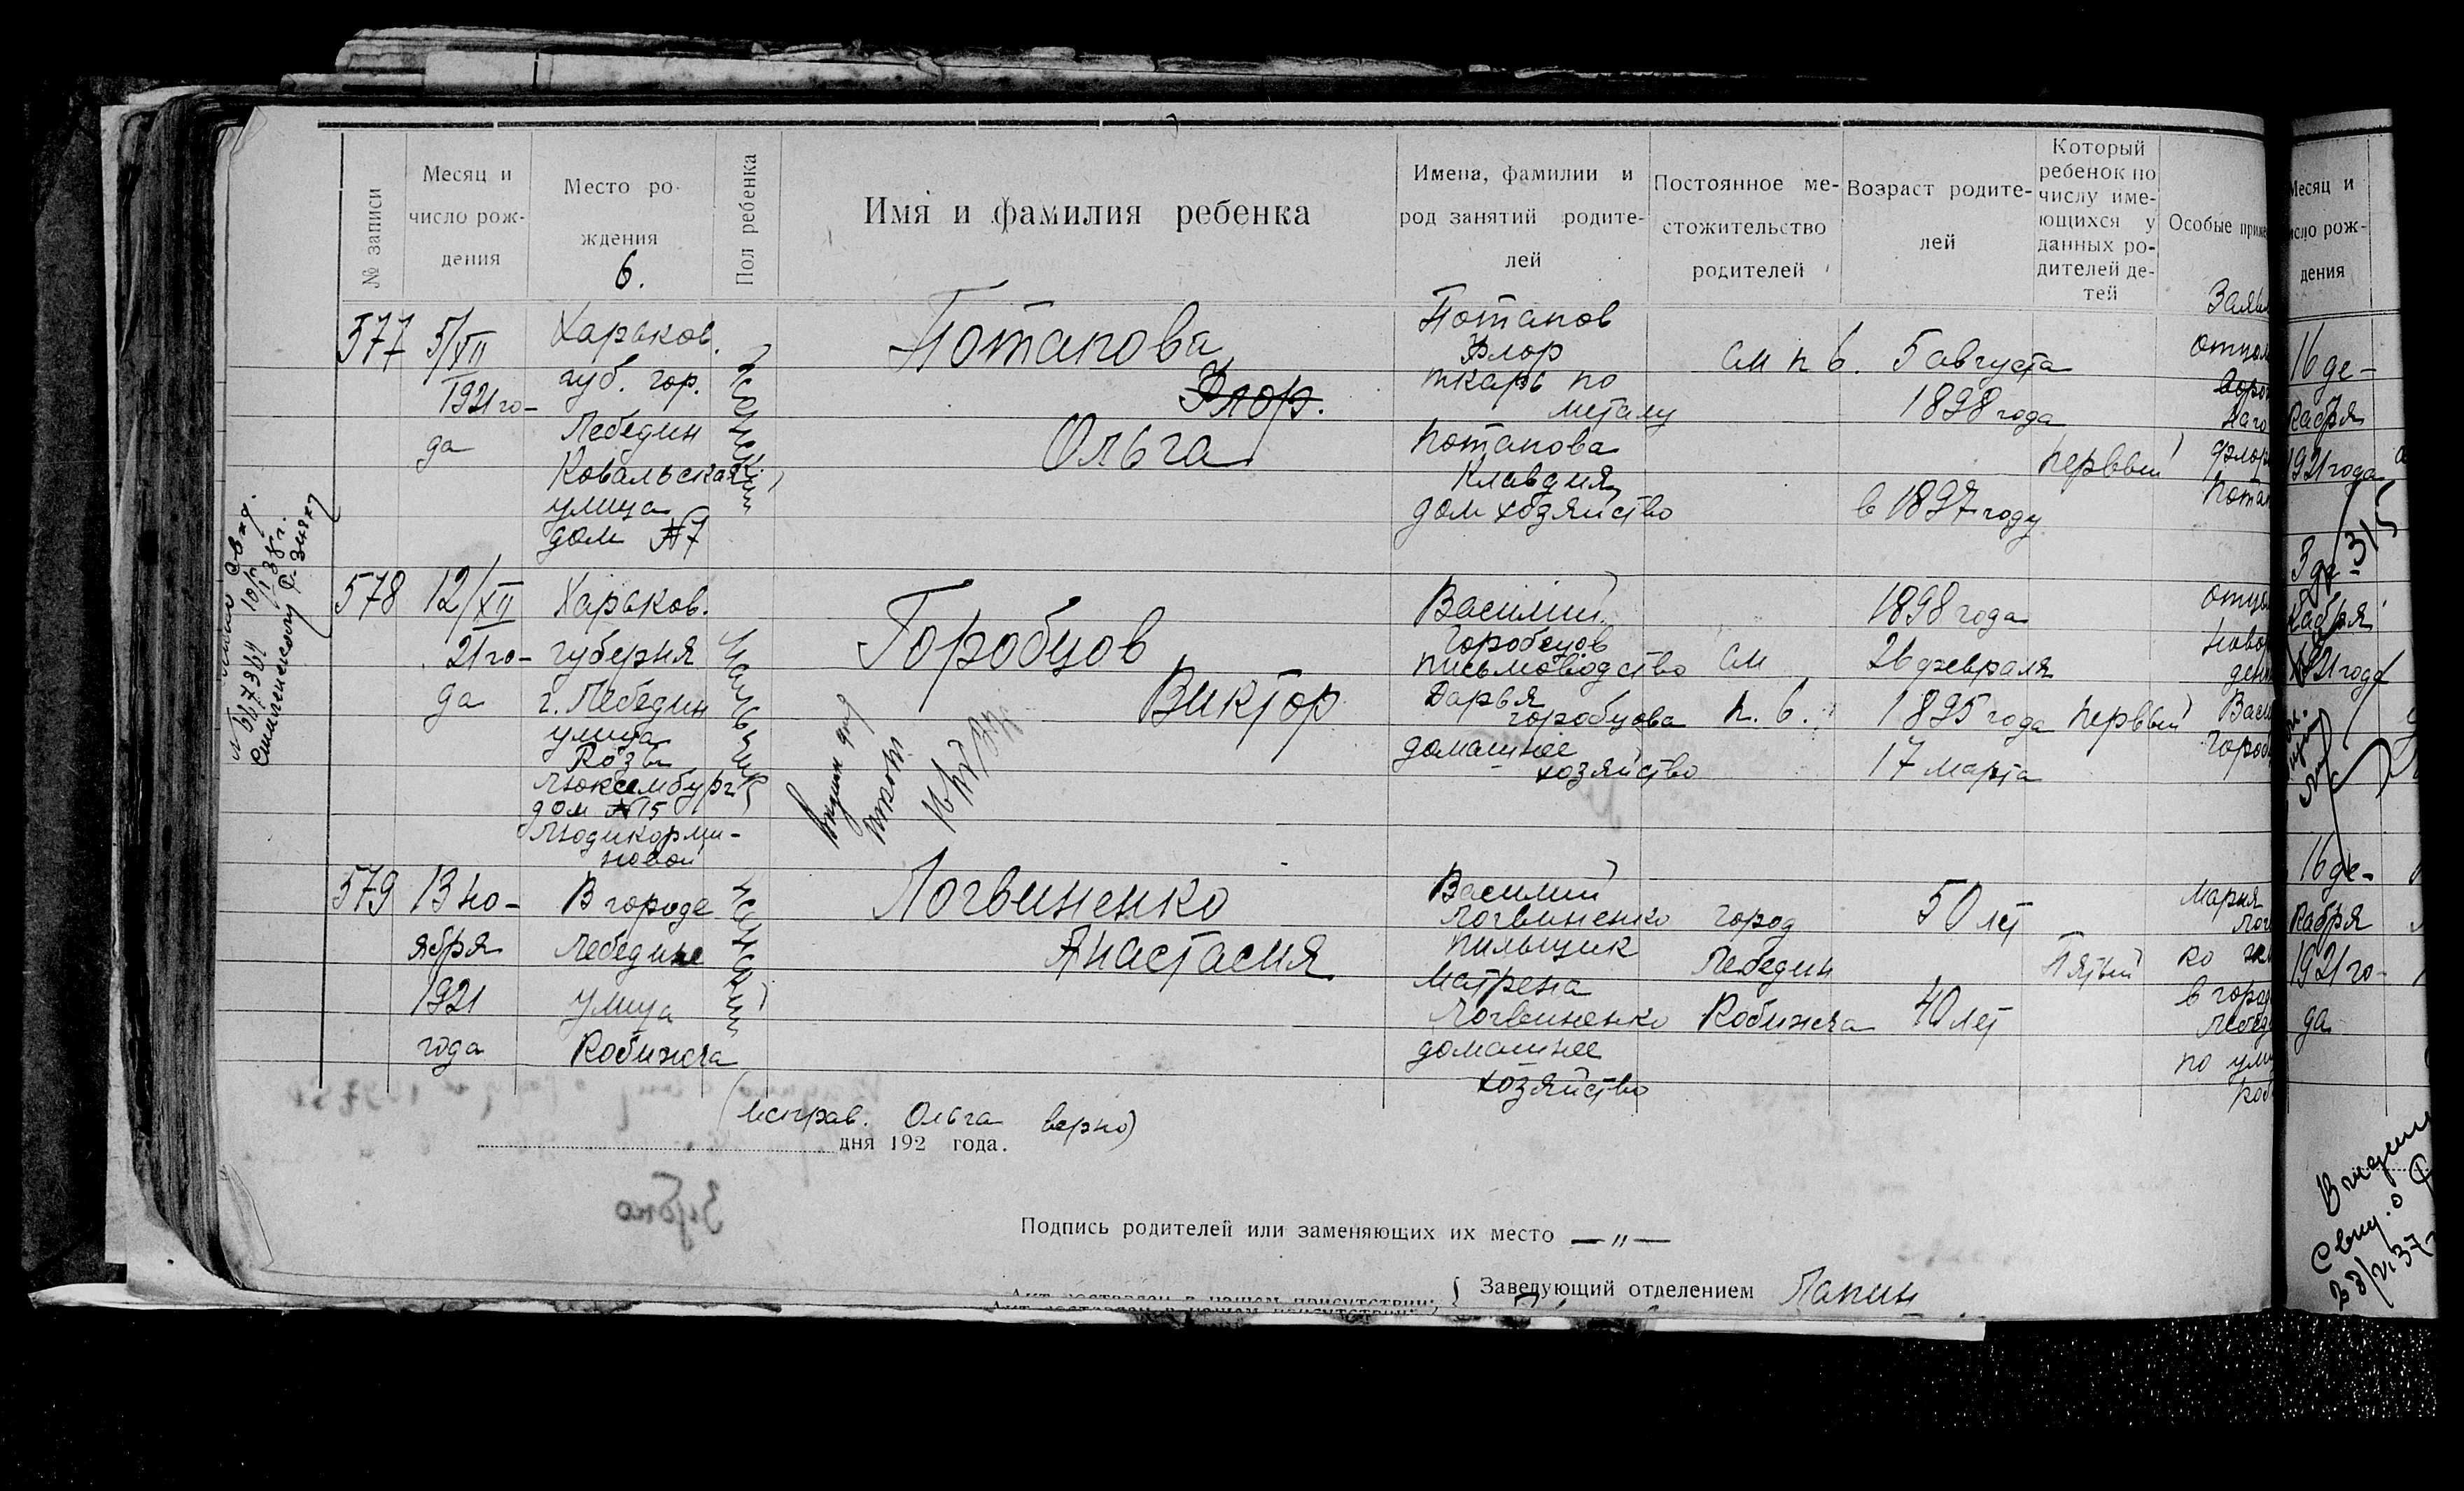 № записи
Месяц и число рож-
дения
Место ро-
ждения
6.
Пол ребенка
Имя и фамилия ребенка
Имена, фамилии и
род занятий родите-
лей
Постоянное ме-
стожительство
родителей
Возраст родите-
лей
Который
ребенок по
числу име-
ющихся у
данных ро-
дителей де-
тей
Особые
577
5/XII
1921 го-
да
Харьков.
губ. гор.
Лебедин
Ковальская
улица
дом №7
женский
Потапова
Флор.
Ольга
Потапов
Флор
ткарь по
металу
Потапова
Клавдия
дом хозяйство
см п 6.
5 августа
1898 года
в 1897 году
первый
578
12/XII
21 го-
да
Харьков.
губерня
г. Лебедин
улица
Розы
Люксембург
дом №15
мальчик
Горобцов
Виктор
Василий
Горобцов
письмоводство
Дарья
горобцова
домашнее
хозяйство
см
п. 6.
1898 года
26 февраля
1895 года
17 марта
первый
579
13 но-
ября
1921
года
В городе
Лебедине
улица
Кобижча
женский
Логвиненко
Анастасия
Василий
Логвиненко
пильщик
Матрена
Логвиненко
домашнее
хозяйство
город
Лебедин
Кобижча
50 лет
40 лет
Пятый
Мария
в
по
(исправ. Ольга верно)
дня 192 года.
Подпись родителей или заменяющих их место —"—
Акт составлен в нашем присутствии:
Заведующий отделением Папин
Месяц и
число рож-
дения
16 де-
кабря
1921 года
3 де-
кабря
1921 года
16 де-
кабря
1921 го-
да